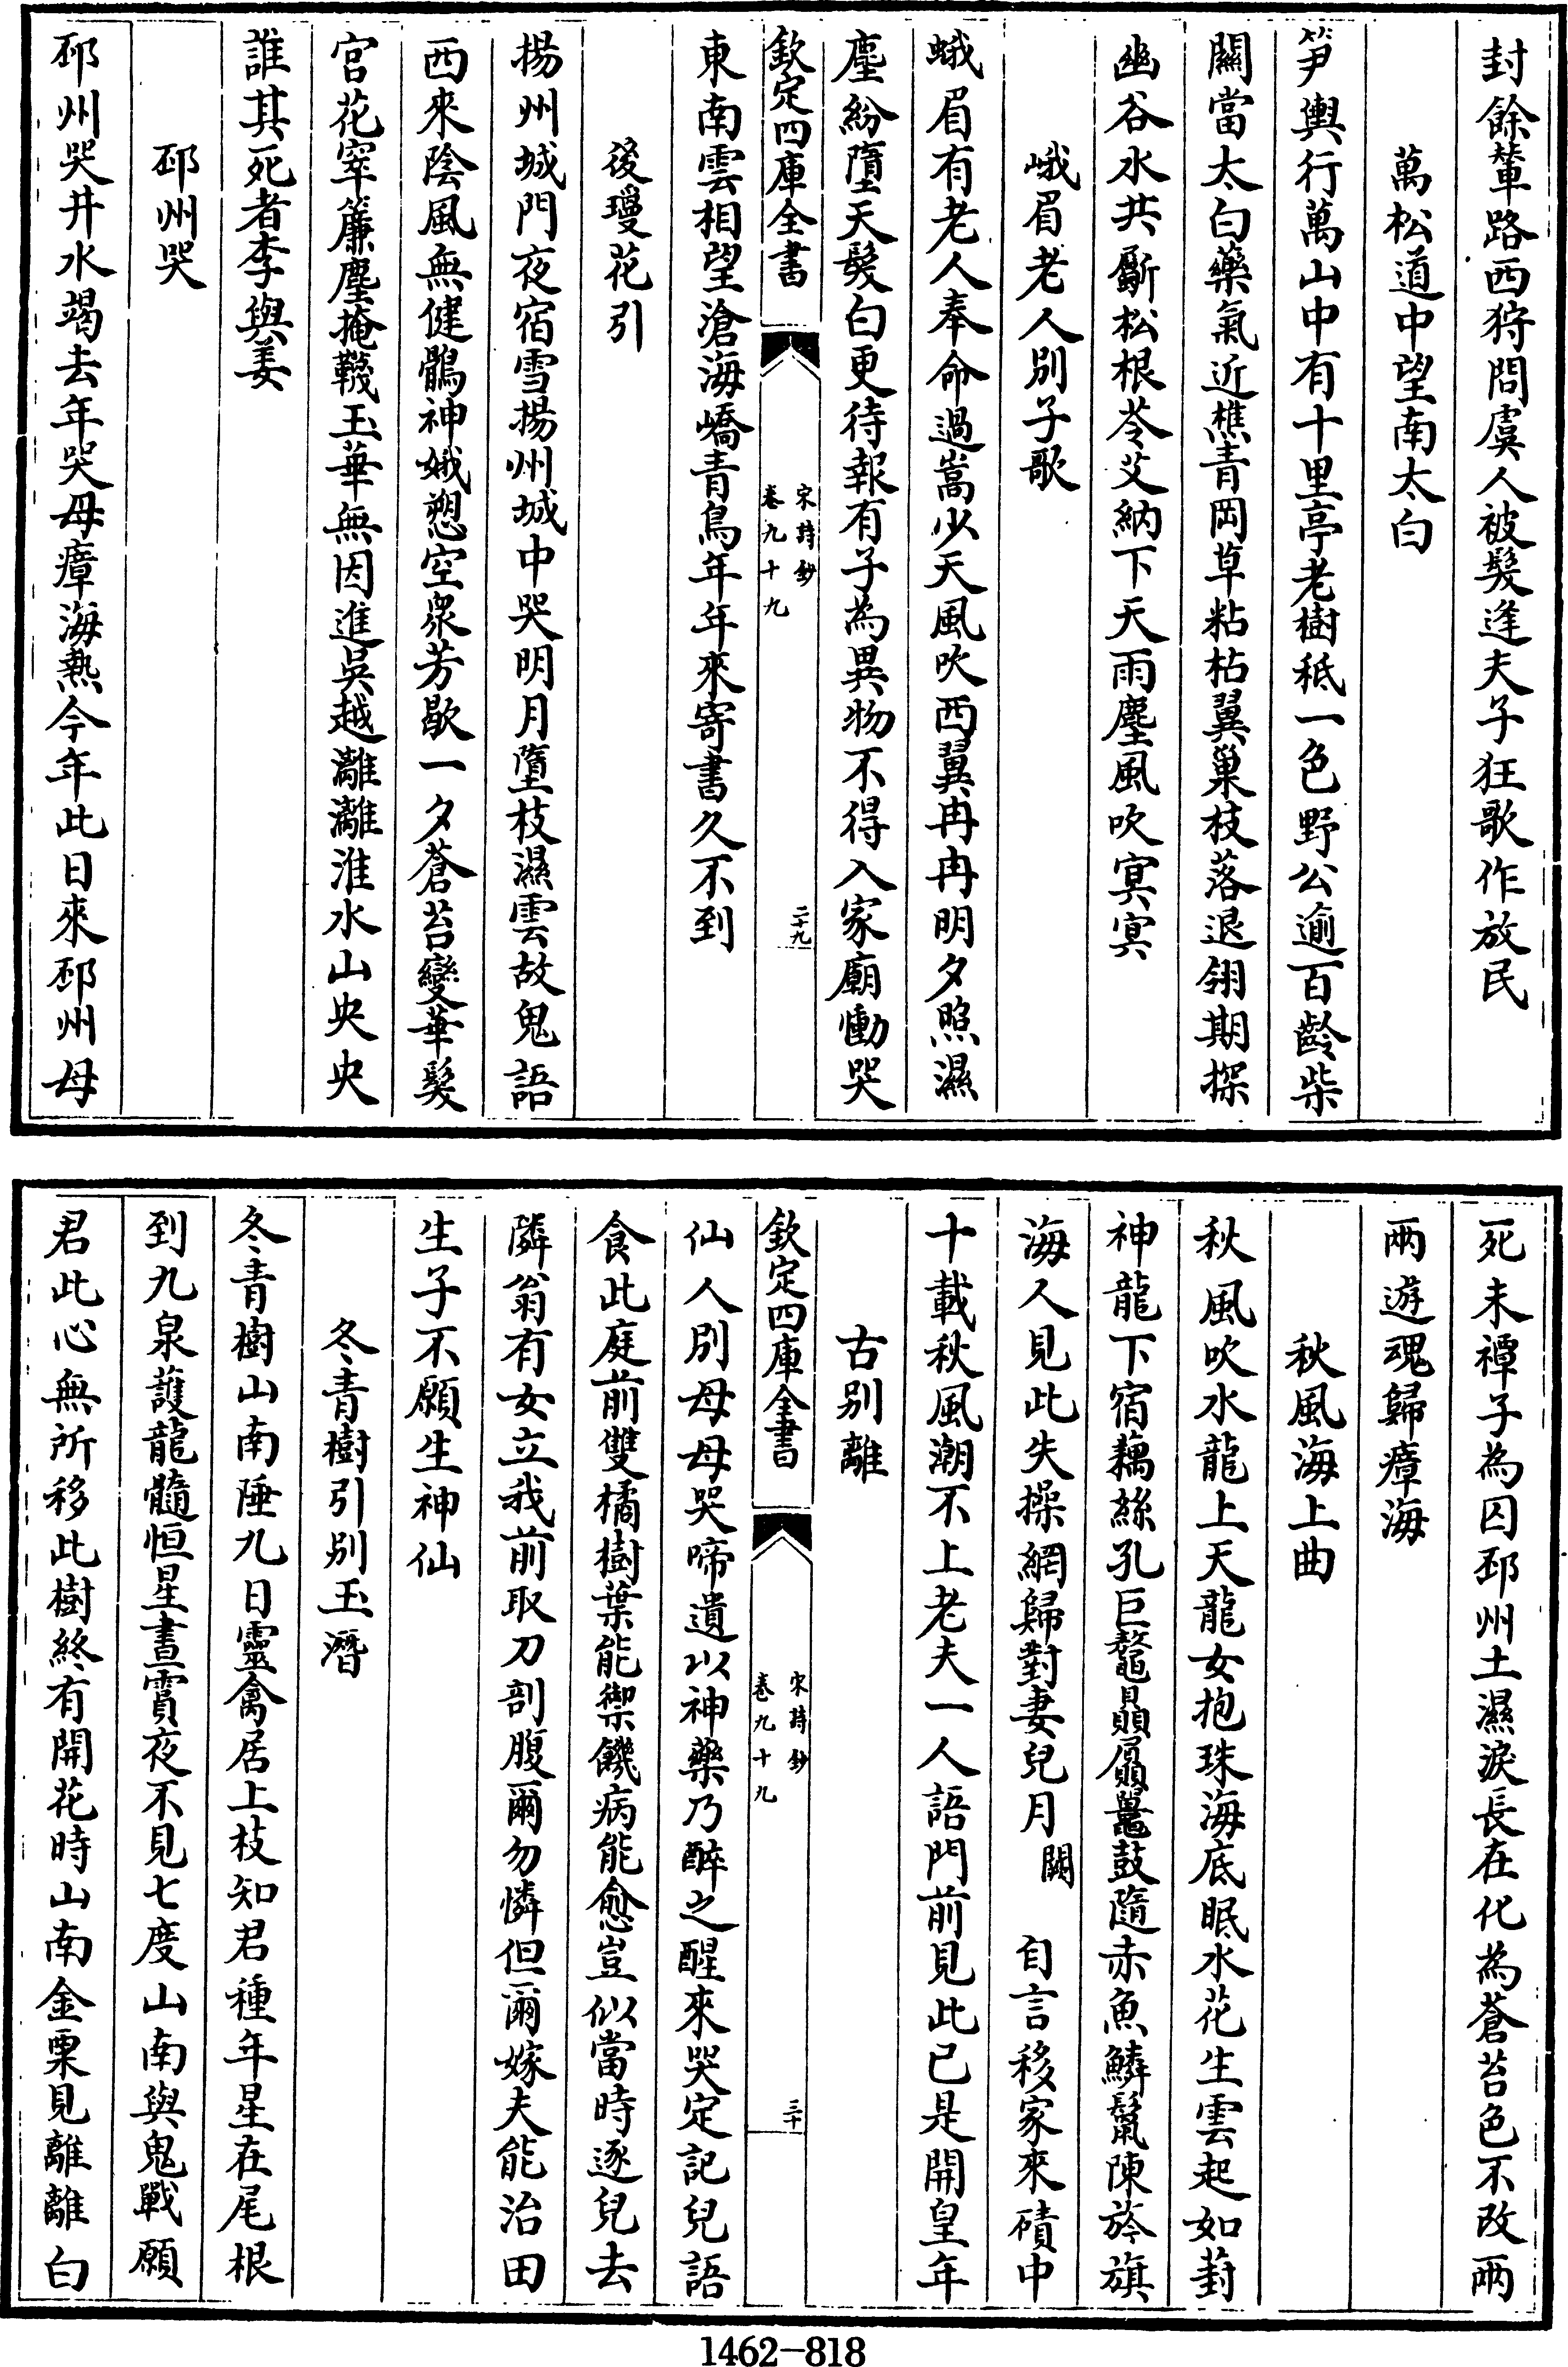 封餘輦路西狩問虞人被髮逢夫子狂歌作放民
萬松道中望南太白
筍輿行萬山中有十里亭老樹秪一色野公逾百齡柴
關當太白藥氣近樵青岡草粘枯翼巢枝落退翎期探
幽谷水共斸松根苓艾納下天雨塵風吹寞寞
峨眉老人別子歌
蛾眉有老人奉命過嵩少天風吹西翼冉冉明夕照濕
塵紛墮天髮白更待報有子為異物不得入家廟慟哭
欽定四庫全書
宋詩鈔
卷九十九
二十九
東南雲相望滄海嶠青鳥年年來寄書久不到
後瓊花引
揚州城門夜宿雪揚州城中哭明月墮枝濕雲故鬼語
西來陰風無健鶻神娥愬空衆芳歇一夕蒼苔變華髮
宮花窣簾塵掩韈玉華無因進吳越灕灕淮水山央央
誰其死者李與姜
邳州哭
邳州哭井水竭去年哭母瘴海熱今年此日來邳州母
死未禫子為囚邳州土濕淚長在化為蒼苔色不改兩
兩遊魂歸瘴海
秋風海上曲
秋風吹水龍上天龍女抱珠海底眠水花生雲起如葑
神龍下宿藕絲孔巨鼇贔屭鼉鼓隨赤魚鱗鬣陳旍旗
海人見此失操網歸對妻兒月闕 自言移家來磧中
十載秋風潮不上老夫一人語門前見此已是開皇年
古別離
欽定四庫全書
宋詩鈔
卷九十九
三十
仙人別母母哭啼遺以神藥乃醉之醒來哭定記兒語
食此庭前雙橘樹葉能禦饑病能愈豈似當時逐兒去
隣翁有女立我前取刀剖腹爾勿憐但爾嫁夫能治田
生子不願生神仙
冬青樹引別玉潛
冬青樹山南陲九日靈禽居上枝知君種年星在尾根
到九泉護龍髓恒星晝霣夜不見七度山南與鬼戰願
君此心無所移此樹終有開花時山南金粟見離離白
1462-818